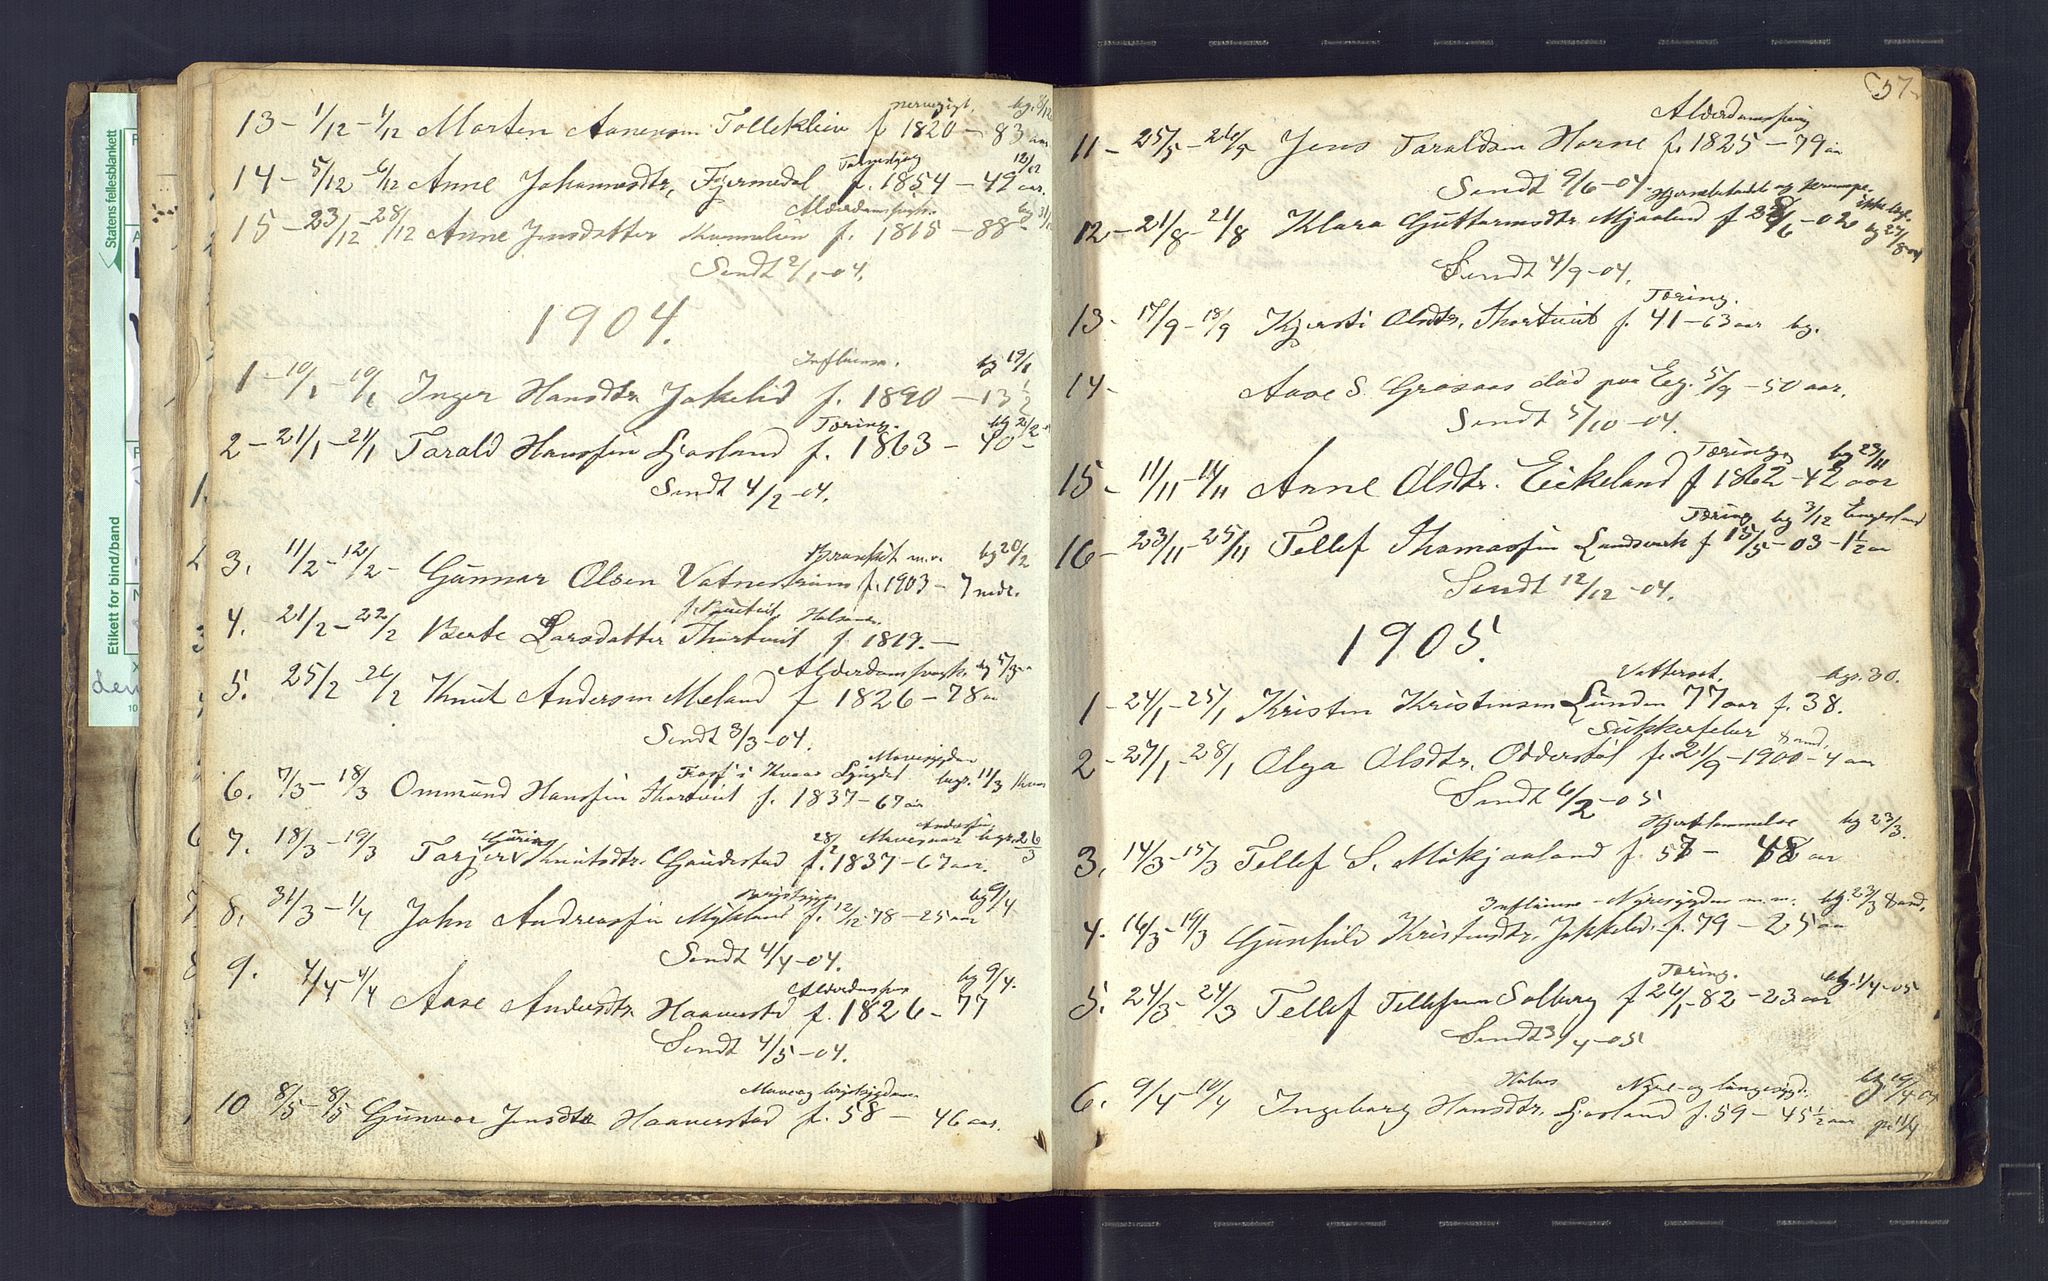 nervegigt. bg. 8/12
13 – 1/12 – 1/12 Morten Aanensen Tolleklein f 1820 – 83 aar
12/12
14 – 5/12 – 6/12 Anne Johannesdtr. Fjermedal f. 1854 – 49 aar.
Alderdomssvagh. bg 31/12
15 – 23/12 – 28/12 Anne Jensdatter f. 1815 – 88
Sendt 2/1 – 04.
1904.
Influensa. bg 19/1
1 – 10/1 – 10/1 Inger Hansdtr. Jokelid f. 1890 – 13 1/2
Tæring. bg 2/2
2 – 21/1 – 21/1 Tarald Hanssøn Ljosland f. 1863 – 40
Sendt 4/2 – 04.
Bronkit m.v. bg 20/2
3. 11/2 – 12/2 – Gunnar Olsen Vatnestrøm f. 1903 – 7 mdr.
4. 21/2 – 22/2 Berte Larsdatter Thortveit f. 1819. –
Alderdomssvagh. bg 5/3
5. 25/2 26/2 Knut Andersen Meland f 1826 – 78 aar
Sendt 3/3 – 04.
Mavesygdom
6. 7/3 – 18/3 Ommund Hanssøn Thortveit f. 1837 – 67 aar begr. 11/3
Guring begr. 26/3
7. 18/3 – 19/3 Tarjer Knutsdtr. Gaudestad f. 1837 – 67 aar.
bg 9/4
8. 31/3 – 1/4 John Andreassøn Mykland f. 12/12 78 – 25 aar
Sendt 4/4 – 04.
Alderdomssv. bg 9/4.
9. 4/4 – 4/4 Aase Andersdtr. Haaverstad f. 1826 – 77
Sendt 4/5 – 04.
Mave og brystsygdom
10 8/5 – 8/5 Gunvor Jensdtr. Haaverstad f. 58 – 46 aar.
57
Alderdomssvag
11 – 25/5 – 26/5 Jens Taraldsen Horne f. 1825 – 79 aar
Sendt 9/6 – 04.
Hjernebetændt og krampe. ikke beg.
12 – 21/8 – 21/8 Klara Guttormsdtr. Mjaaland f 28/6 – 02 bg 27/8 04
Sendt 4/9 – 04.
Tæring.
13 – 17/9 – 18/9 Kjersti Olsdtr. Thortveit f. 41 – 63 aar bg.
14 – Aase S. Grosaas død paa Eg. 5/9 – 50 aar.
Sendt 5/10 – 04.
Tæring bg 23/11
15 – 11/11 – 14/11 Anne Olsdtr. Eikeland f 1862 – 42 aar
Tæring bg 3/12 Engesland
16 – 23/11 – 25/11 Tellef Thomassøn Landsverk f 15/5 – 03 – 1 1/2 aar
Sendt 12/12 – 04.
1905.
Vattersot. bgr. 30.
1 – 24/1 – 25/1 Kristen Kristensen Lunden 77 aar f. 38.
Sukkersyke
2 – 27/1 – 28/1 Olga Olsdtr. Oddestøl f. 21/9 – 1900 – 4 aar
Sendt 6/2 – 05
Hjertelammelse bg 23/3.
3. 14/3 – 15/3 Tellef S. Mikjaaland f. 57 – 48 aar
Influensa – Nyresygdom m.m. bg. 23/3
4. 16/3 – 19/3 Gunhild Kristensdtr. Jokkelid. f. 79 – 25 aar
Tæring. bg. 1/4 – 05
5. 24/3 – 24/3 Tellef Tellefsen Solberg f 26/1 – 82 – 23 aar
Sendt 3/4 – 05
Nyre – og lungesygd. bg 19/4 05
6. 9/4 – 10/4 Ingeborg Hansdtr. Ljosland f. 59 – 45 1/2 aar
Statens fellesblankett
Etikett for bind/band